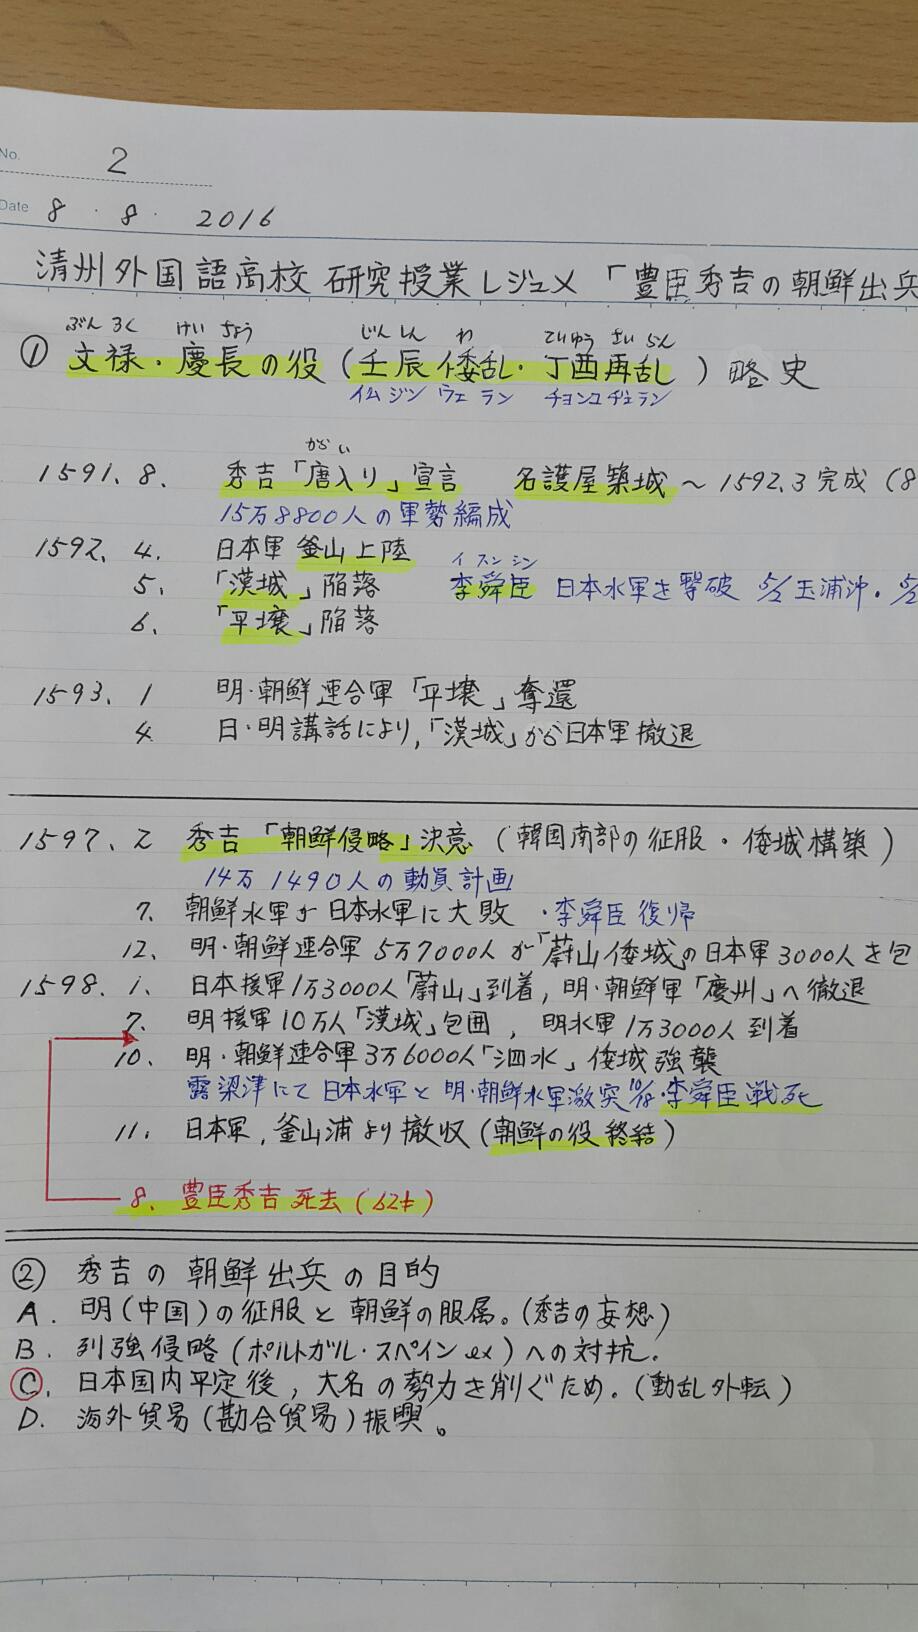 No. 2
Date 8 · 8 · 2016
清州外国語高校 研究授業レジュメ 「豊臣秀吉の朝鮮出兵
ぶん ろく けい ちょう じん しん わ ていゆう さい らん
① 文禄・慶長の役 (壬辰倭乱・丁酉再乱) 略史
イム ジン ウェ ラン チョンユ ヂェラン
がらい
1591. 8. 秀吉「唐入り」宣言 名護屋築城 ～ 1592.3 完成 (8
15万8800人の軍勢編成
1592. 4. 日本軍 釜山上陸
イ スン シン
5. 「漢城」陥落 李舜臣 日本水軍を撃破 5/2 玉浦沖・5/2
6. 「平壌」陥落
1593. 1 明・朝鮮連合軍「平壌」奪還
4 日・明講話により,「漢城」から日本軍撤退
1597. 2 秀吉「朝鮮侵略」決意 (韓国南部の征服・倭城構築)
14万1490人の動員計画
7. 朝鮮水軍が日本水軍に大敗 ・李舜臣復帰
12. 明・朝鮮連合軍 5万7000人が「蔚山倭城」の日本軍3000人を包
1598. 1. 日本援軍1万3000人「蔚山」到着, 明・朝鮮軍「慶州」へ撤退
7. 明援軍10万人「漢城」包囲, 明水軍1万3000人到着
10. 明・朝鮮連合軍3万6000人「泗水」倭城強襲
露梁津にて日本水軍と明・朝鮮水軍激突10/18・李舜臣戦死
11. 日本軍, 釜山浦より撤収 (朝鮮の役 終結)
8. 豊臣秀吉 死去 (62才)
② 秀吉の朝鮮出兵の目的
A. 明(中国)の征服と朝鮮の服属。(秀吉の妄想)
B. 列強侵略(ポルトガル・スペイン ex)への対抗.
C. 日本国内平定後, 大名の勢力を削ぐため。(動乱外転)
D. 海外貿易(勘合貿易)振興。